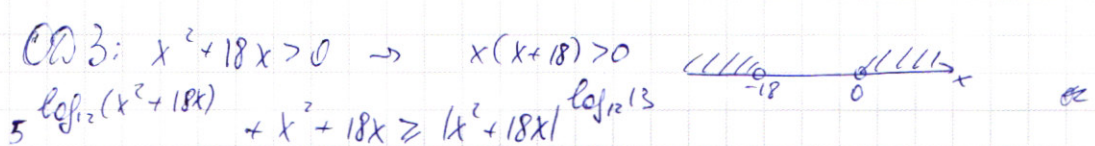 ОДЗ: x² + 18x > 0 → x(x+18) > 0 -18 0 x
5^{log₁₂(x²+18x)} + x² + 18x ≥ |x² + 18x|^{log₁₂13}